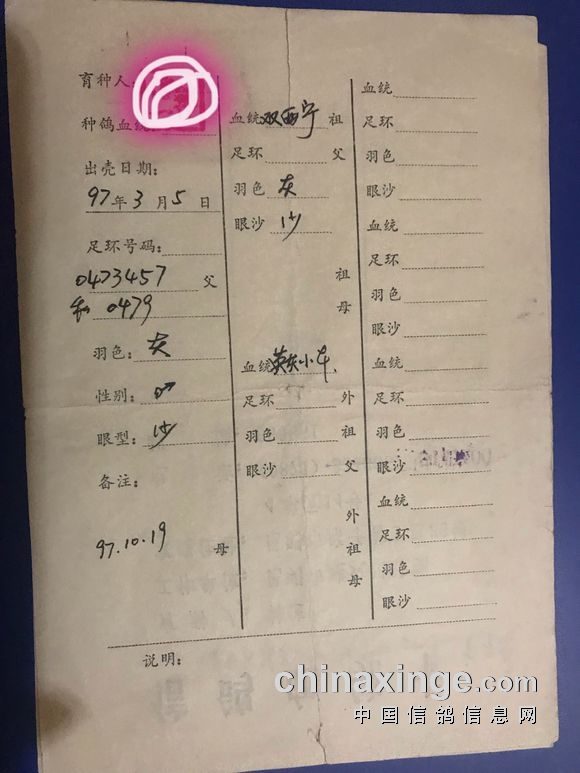 育种人:
种鸽血统
出壳日期:
97年3月5日
足环号码:
0473457 父
和 0479
羽色: 灰
性别: ♂
眼型: 沙
备注:
97.10.19 母
血统 双西宁 祖
足环 父
羽色 灰
眼沙 沙
祖
母
血统 英灰小车
足环 外
羽色 祖
眼沙 父
外
祖
母
血统
足环
羽色
眼沙
血统
足环
羽色
眼沙
血统
足环
羽色
眼沙
血统
足环
羽色
眼沙
说明:
chinaxinge.com
中国信鸽信息网